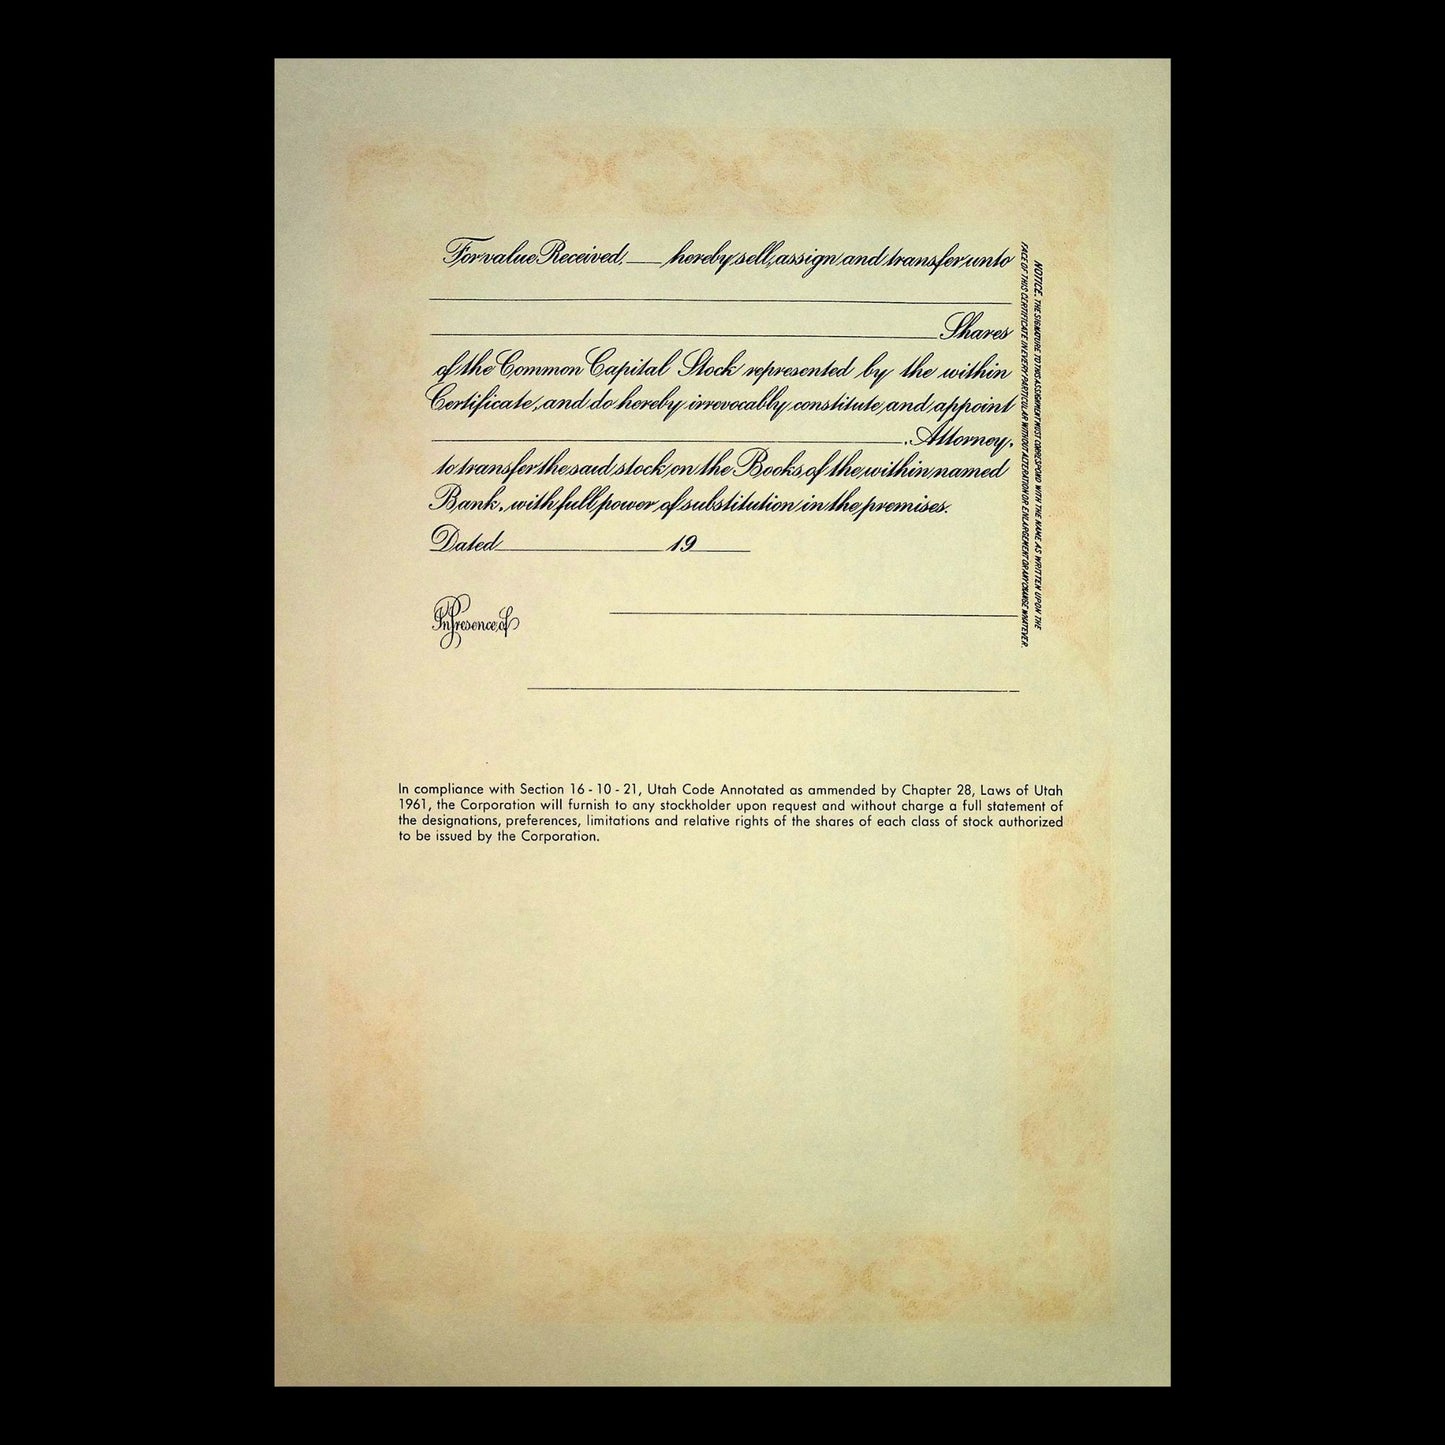 For value Received, ___ hereby sell, assign and transfer unto
Shares
of the Common Capital Stock represented by the within
Certificate, and do hereby irrevocably constitute and appoint
Attorney,
to transfer the said stock on the Books of the within named
Bank, with full power of substitution in the premises.
Dated ___ 19 ___
In Presence of
NOTICE. THE SIGNATURE TO THIS ASSIGNMENT MUST CORRESPOND WITH THE NAME AS WRITTEN UPON THE
FACE OF THIS CERTIFICATE IN EVERY PARTICULAR WITHOUT ALTERATION OR ENLARGEMENT OR ANY CHANGE WHATEVER.
In compliance with Section 16 - 10 - 21, Utah Code Annotated as ammended by Chapter 28, Laws of Utah
1961, the Corporation will furnish to any stockholder upon request and without charge a full statement of
the designations, preferences, limitations and relative rights of the shares of each class of stock authorized
to be issued by the Corporation.